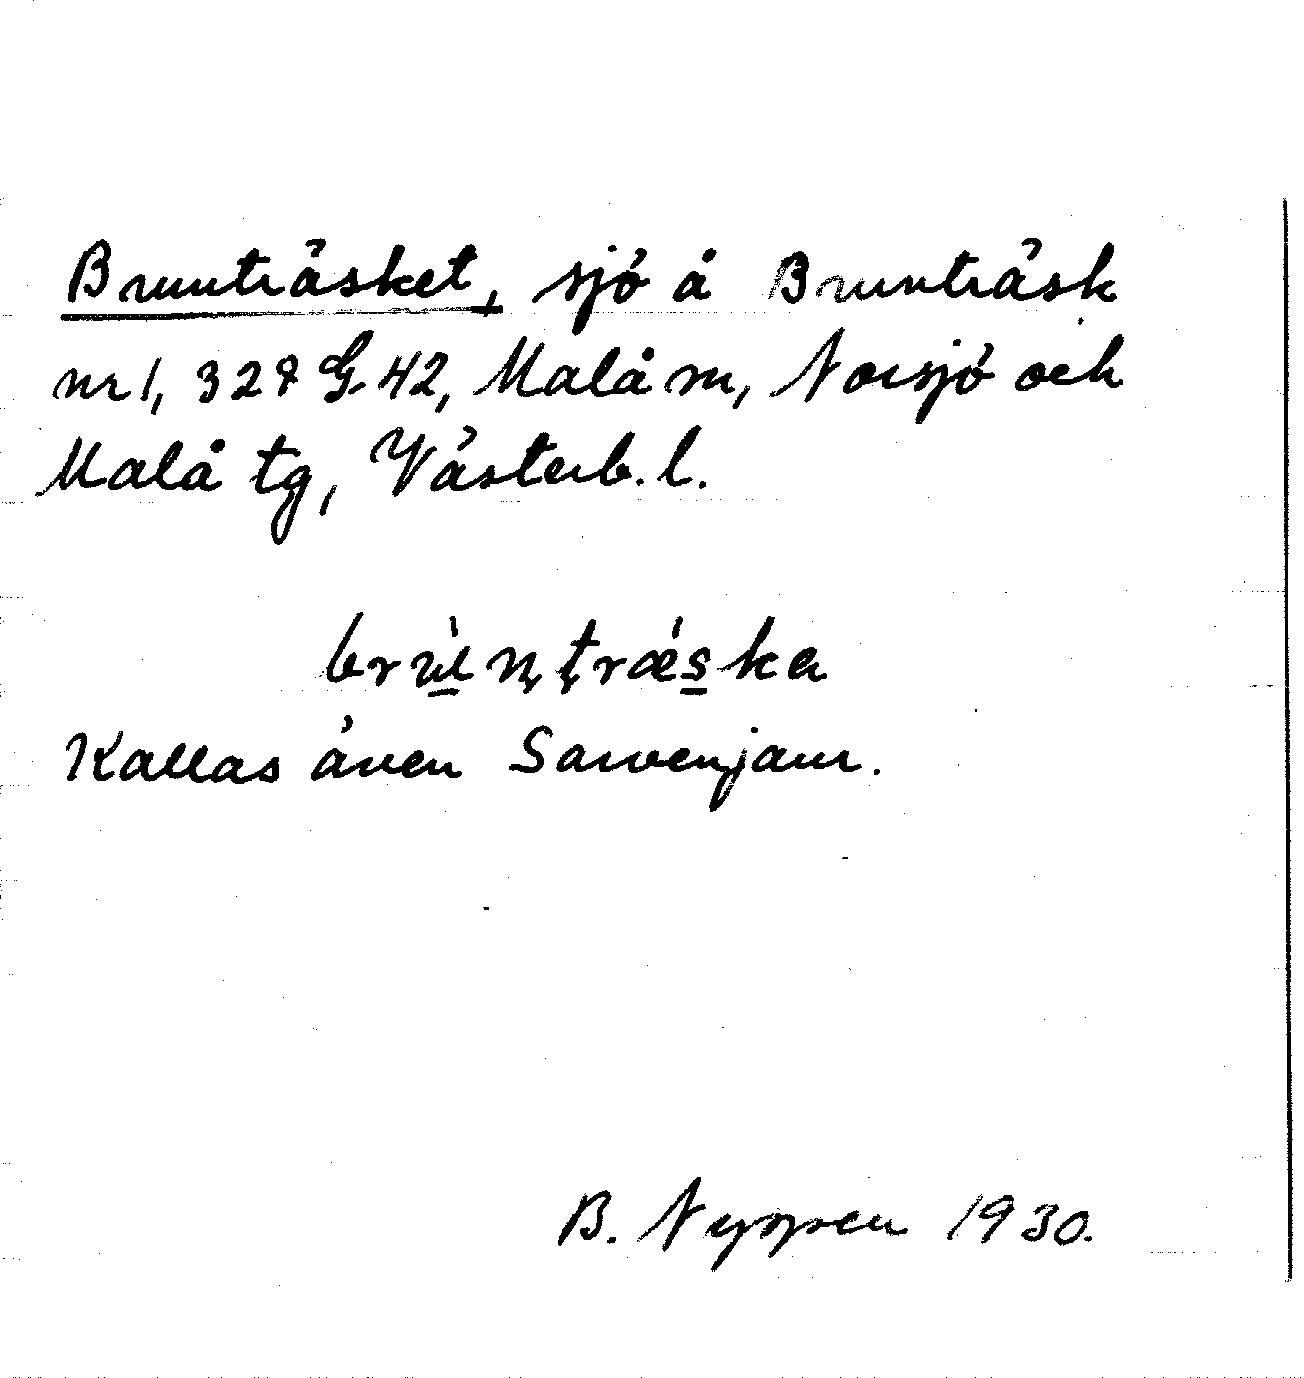 Brunträsket, sjö å Brunträsk
nr 1, 328 G 42, Malå sn, Norsjö och
Malå tg, Västerb. l.
brùntrǽska
Kallas även Sarvenjaur.
B. Nyspen 1930.